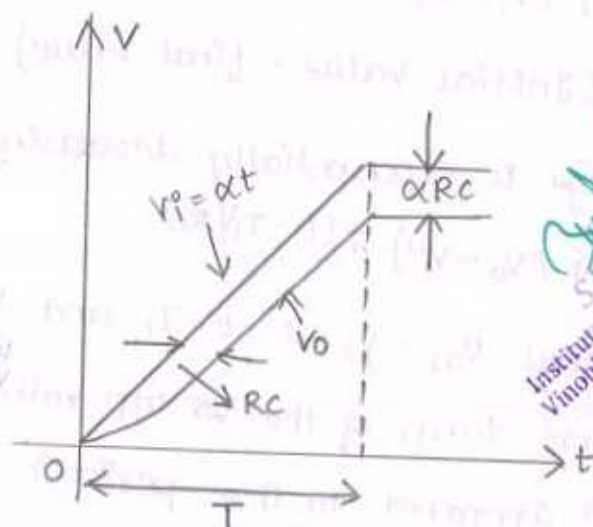 V
vi = αt
αRC
V0
RC
0
t
T
Institut
Vinob